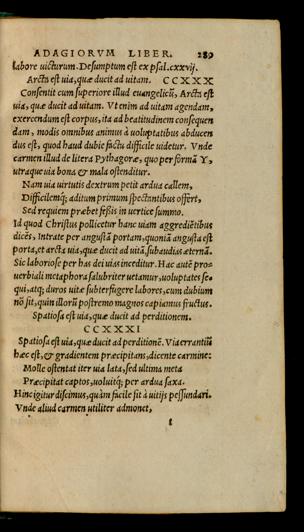 ADAGIORVM LIBER. 289
labore uicturum. Desumptum est ex psal. cxxvij.
Arcta est uia, quæ ducit ad uitam. CCXXX
Consentit cum superiore illud euangelicũ, Arcta est
uia, quæ ducit ad uitam. Vt enim ad uitam agendam,
exercendum est corpus, ita ad beatitudinem consequen
dam, modis omnibus animus à uoluptatibus abducen
dus est, quod haud dubie factu difficile uidetur. Vnde
carmen illud de litera Pythagoræ, quo per formã Y,
utraque uia bona & mala ostenditur.
Nam uia uirtutis dextrum petit ardua callem,
Difficilemq; aditum primum spectantibus offert,
Sed requiem præbet fessis in uertice summo.
Id quod Christus pollicetur hanc uiam aggrediẽtibus
dicẽs, Intrate per angustã portam, quoniã angusta est
porta, et arcta uia, quæ ducit ad uitã, subaudias æternã.
Sic laboriose per has dei uias inceditur. Hac autẽ pro=
uerbiali metaphora salubriter utemur, uoluptates se=
qui, atq; duros uitæ subterfugere labores, cum dubium
nõ sit, quin illorũ postremo magnos capiamus fructus.
Spatiosa est uia, quæ ducit ad perditionem.
CCXXXI
Spatiosa est uia, quæ ducit ad perditionẽ. Via errantiũ
hæc est, & gradientem præcipitans, dicente carmine:
Molle ostentat iter uia lata, sed ultima meta
Præcipitat captos, uoluitq; per ardua saxa.
Hinc igitur discimus, quàm facile sit à uitijs pessundari.
Vnde aliud carmen utiliter admonet,
t